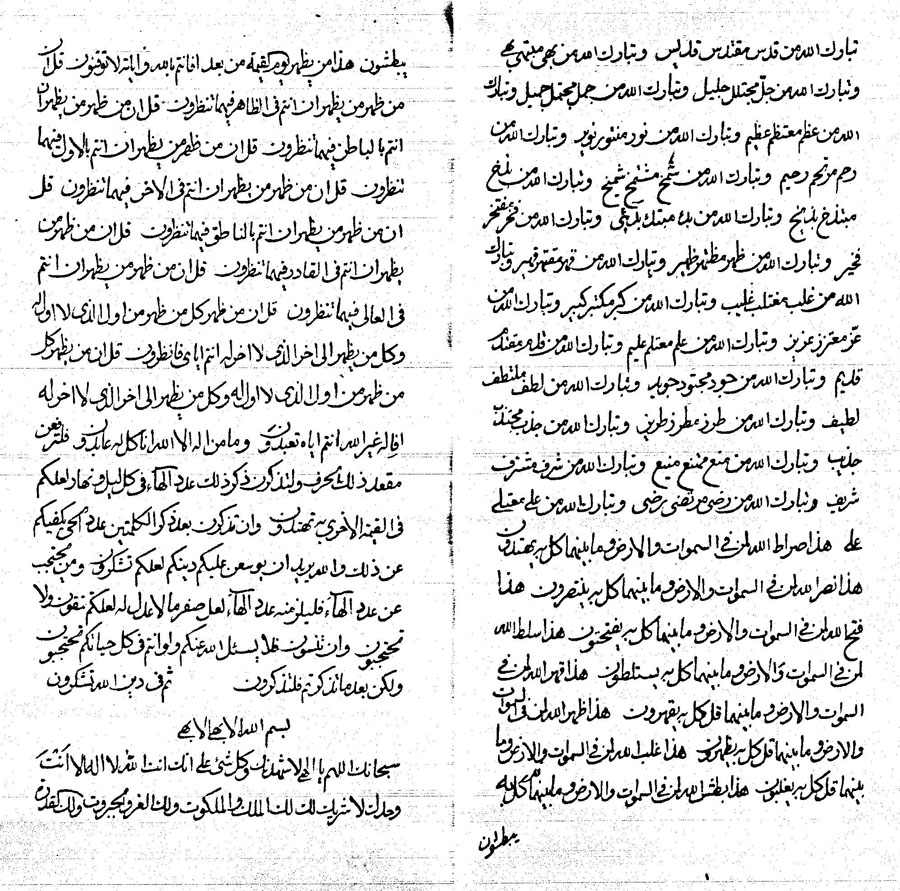 تبارك الله من قدس مقتدس قديس وتبارك الله من بهي مبتهي بهي
وتبارك الله من جل مجتلل جليل وتبارك الله من جمل مجتمل جميل وتبارك
الله من عظم معتظم عظيم وتبارك الله من نور منتور نوير وتبارك الله من
رحم مرتحم رحيم وتبارك الله من شمخ مشتمخ شميخ وتبارك الله من بذخ
مبتذخ بذيخ وتبارك الله من بدء مبتدء بديء وتبارك الله من فخر مفتخر
فخير وتبارك الله من ظهر مظتهر ظهير وتبارك الله من قهر مقتهر قهير وتبارك
الله من غلب مغتلب غليب وتبارك الله من كبر مكتبر كبير وتبارك الله من
عز معتزز عزيز وتبارك الله من علم معتلم عليم وتبارك الله من قدم مقتدم
قديم وتبارك الله من جود مجتود جويد وتبارك الله من لطف ملتطف
لطيف وتبارك الله من طرز مطرز طريز وتبارك الله من جذب مجتذب
جذيب وتبارك الله من منع ممتنع منيع وتبارك الله من شرف مشترف
شريف وتبارك الله من رضي مرتضي رضي وتبارك الله من علي معتلي
علي هذا صراط الله لمن في السموات والارض وما بينهما كل به يهتدون
هذا نصر الله لمن في السموات والارض وما بينهما كل به ينتصرون هذا
فتح الله لمن في السموات والارض وما بينهما كل به يفتحون هذا سلط الله
لمن في السموات والارض وما بينهما كل به يستلطون هذا قهر الله لمن في
السموات والارض وما بينهما قل كل به يقهرون هذا ظهر الله لمن في السموات
والارض وما بينهما قل كل به يظهرون هذا غلب الله لمن في السموات والارض وما
بينهما قل كل به يغلبون هذا بطش الله لمن في السموات والارض وما بينهما كل به
يبطشون
يبطشون هذا من يظهر يوم القيمة من بعد افانتم بالله واياته لا توقنون قل ان
من ظهر من يظهر ان انتم في الظاهر فيما تنظرون قل ان من ظهر من يظهر ان
انتم بالباطن فيما تنظرون قل ان من ظهر من يظهر ان انتم بالاول فيما
تنظرون قل ان من ظهر من يظهر ان انتم في الاخر فيما تنظرون قل
ان من ظهر من يظهر ان انتم بالناطق فيما تنظرون قل ان من ظهر من
يظهر ان انتم في القادر فيما تنظرون قل ان من ظهر من يظهر ان انتم
في العالي فيما تنظرون قل ان من ظهر كل من ظهر من اول الذي لا اول له
وكل من يظهر الى اخر الذي لا اخر له انتم اياي فانظرون قل ان من يظهر كل
من ظهر من اول الذي لا اول له وكل من يظهر الى اخر الذي لا اخر له
افاله غير الله انتم اياه تعبدون وما من اله الا الله انا كل له عابدون فلترفعن
مقعد ذلك الحرف ولتذكرون ذكر ذلك عدد الهاء في كل ليل ونهار لعلكم
في القيمة الاخرى به تهتدون وان تذكرون بعد ذكر الكلمتين عدد الحي يكفيكم
عن ذلك والله يريد ان يوسعن عليكم دينكم لعلكم تشكرون ومن يحتجب
عن عدد الهاء فليلزمنه عدد الهاء لعل صفر ما لا عدل له لعلكم تتقون ولا
تحتجبون وان تنسون فلا يسئل الله عنكم ولو انتم في كل حياتكم تحتجبون
ولكن بعد ما تذكرتم فلتذكرون ثم في دين الله تشكرون
بسم الله الابهى الابهى
سبحانك اللهم يا الهي لاشهدنك وكل شيء على انك انت الله لا اله الا انت
وحدك لا شريك لك لك الملك والملكوت ولك العز والجبروت ولك القدرة